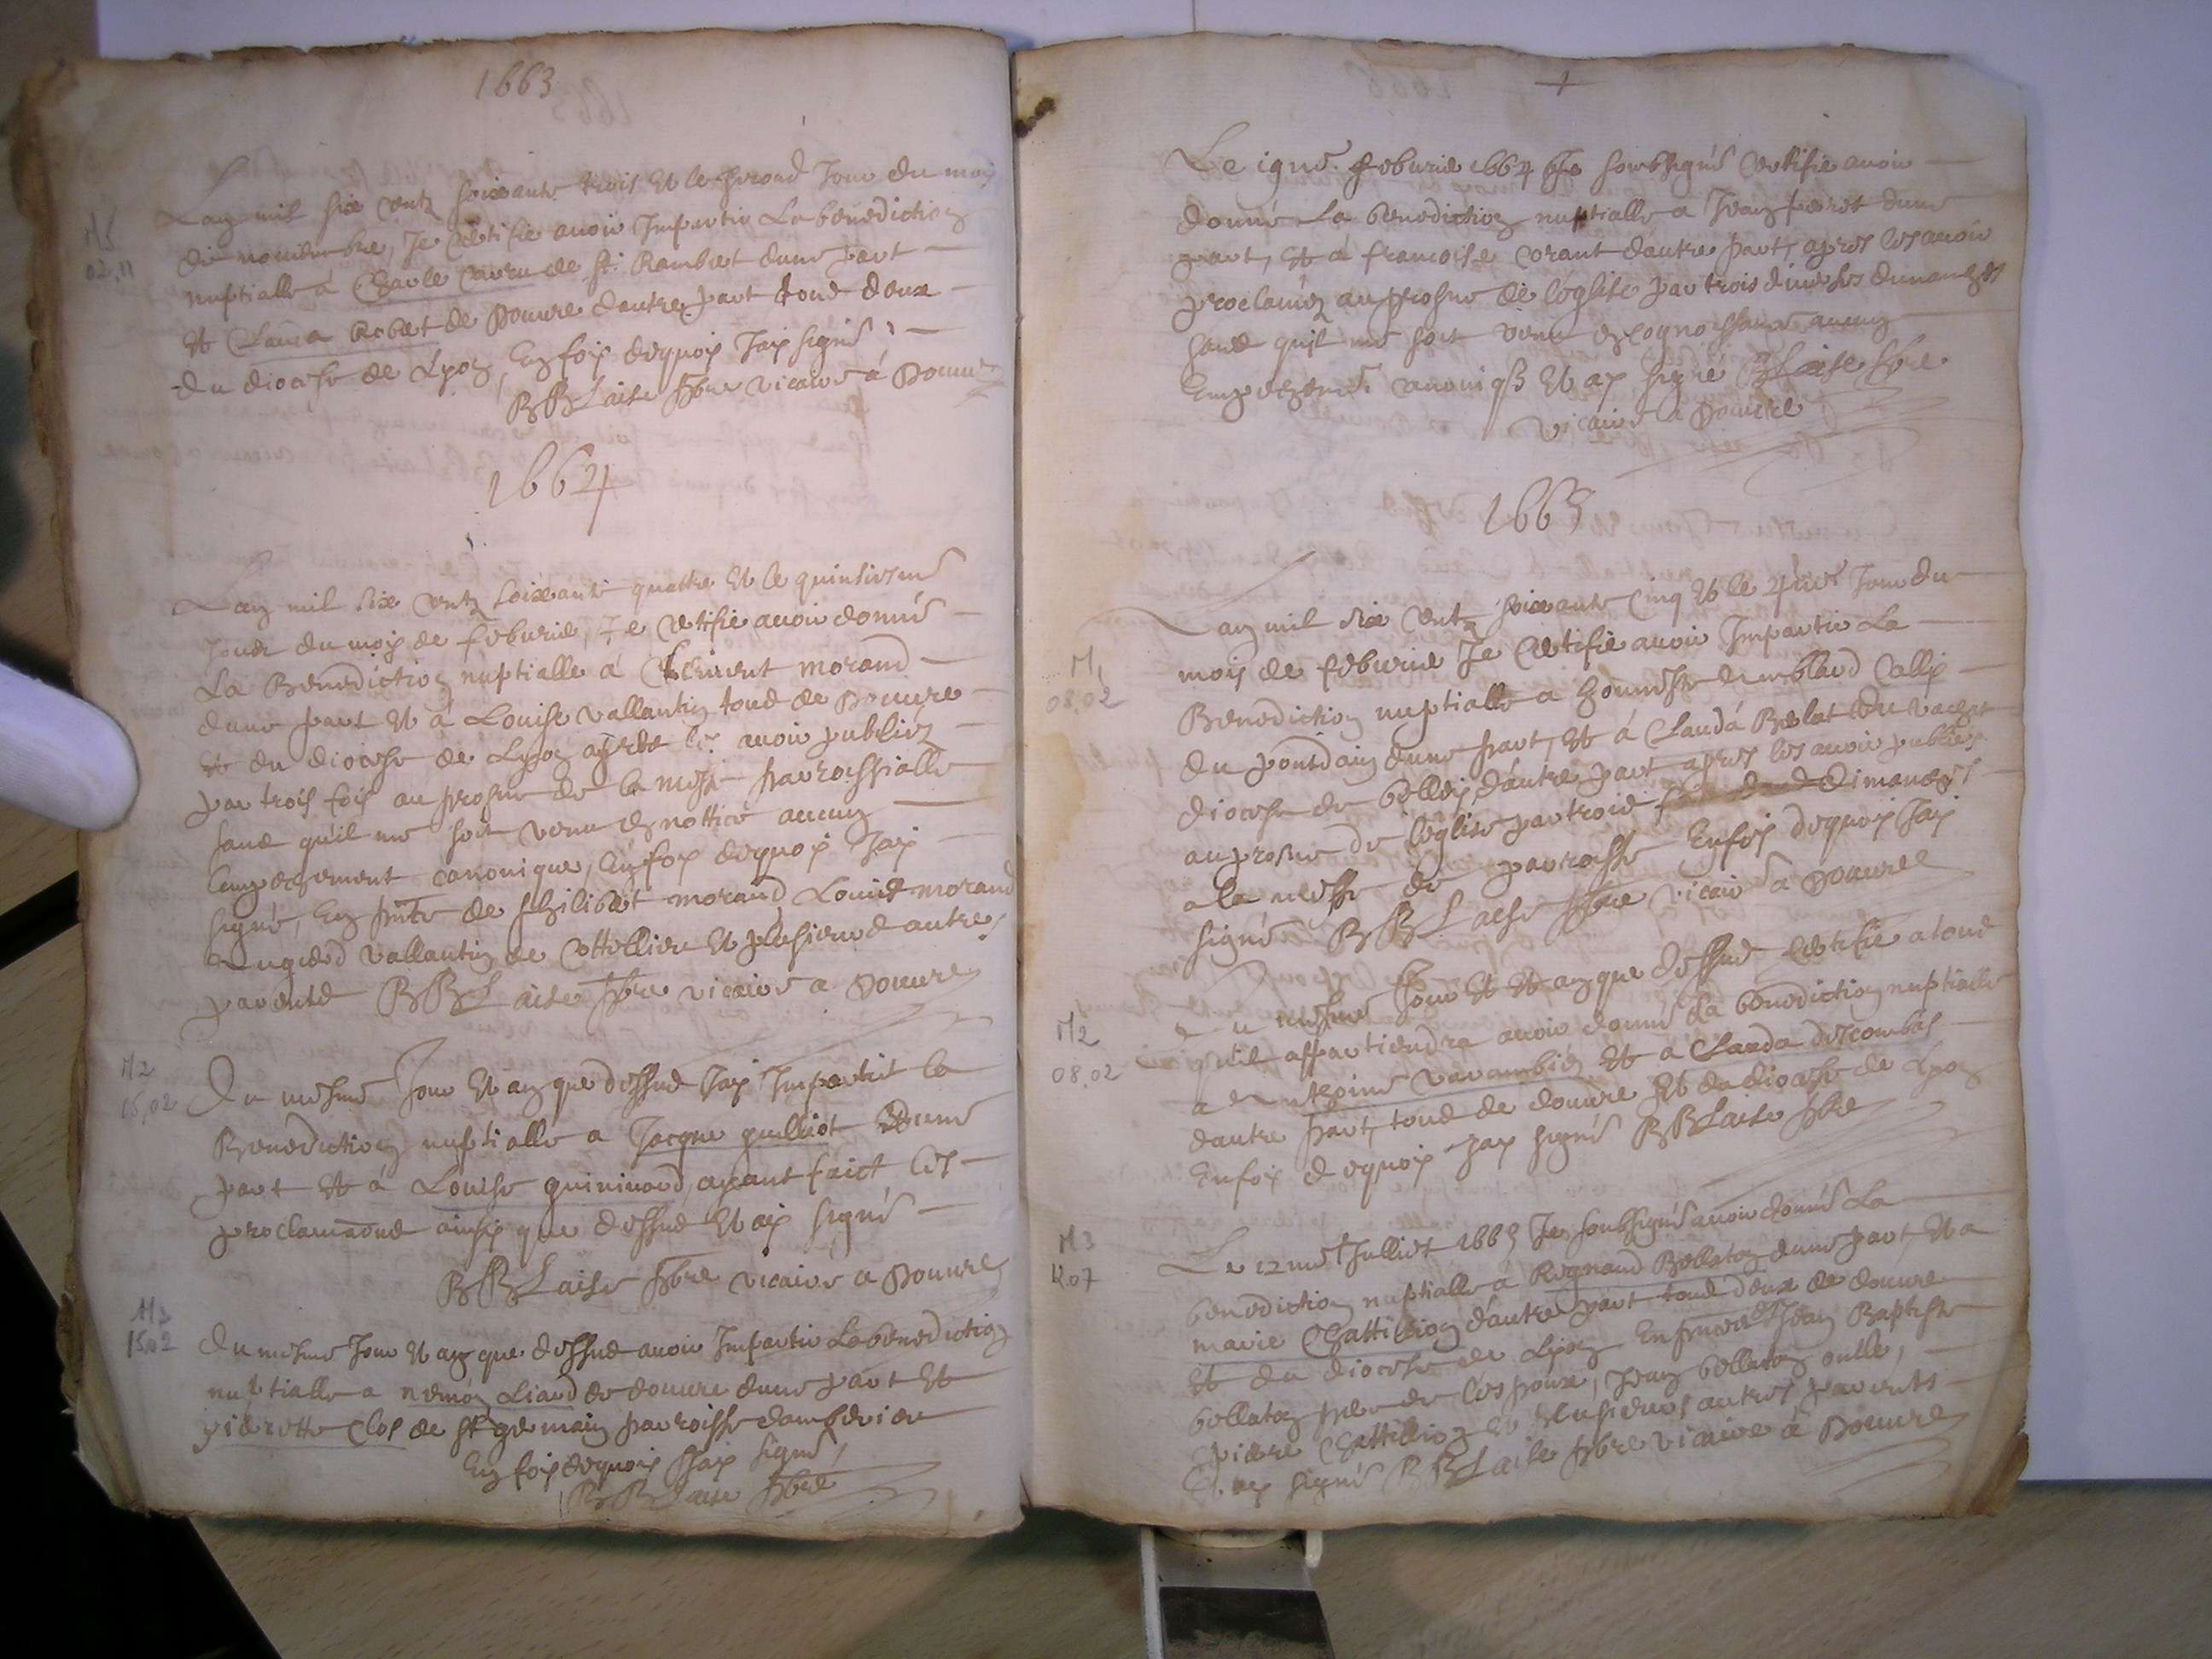 1663
Lan mil six centz soixante trois et le second Jour du mois
M5
02,11
de novembre, Je certifie avoir Impartir La benediction
nuptialle à Charle de St. Rambert dune part
et Clauda Robert de Douvre dautre part tous deux
du diocese de Lyon, En foy dequoy Jay signé
BBLaise pbre vicaire à Douvre
1664
Lan mil six centz soixante quattre et le quinsiesme
Jour du mois de feburier, Je certifie avoir donné
La Benediction nuptialle à Clement morand
dune part et à Louise vallantin tous de Douvre
et du diocese de Lyon apres les avoir publiéz
par trois fois au prosne de la messe parroissialle
sans qu'il me soit venu en nottice aucun
Empechement canonique, En foy dequoy Jay
signé, En pntce de philibert morand Louis morand
vallantin de Cottelliere et plusieurs autres
parents BBLaise pbre vicaire a Douvre
M2
15,02
Du mesme Jour et an que dessus Jay Impartit la
Benediction nuptialle a Jacque guilliot dune
part et à Louise guinivord, ayant faict les
proclamaons ainsy que dessus et ay signé
BBLaise pbre vicaire a Douvre
M3
15,02
Du mesme Jour et an que dessus avoir Impartir La benediction
nuptialle a nemoz Liard de douvre dune part et
pierette Clos de st germain parroisse damberieu
En foy dequoy Jay signé,
BBLaise pbre
+
Le feburier 1664 Je soubsigné certifie avoir
donné La benediction nuptialle a Jean perret dune
part, et à francoise Corant dautre part, apres les avoir
proclaméz au prosne de léglise par trois diverses dimanches
sans quil me soit venu en cognoissance aucun
Empechemt. et ay signé BLaise pbre
vicaire a Douvre
1665
Lan mil six centz soixante Cinq et le Jour du
M1
08,02
mois de feburier Je certifie avoir Impartir La
Benediction nuptialle a honneste humbland Cally
du pontdain dune part, et à Clauda Brelat du
diocese de belley, dautre part apres les avoir publiez
au prosne de léglise par trois dimanches
a la messe de parroisse En foy dequoy Jay
signé BBLaise pbre vicaire a Douvre
M2
08,02
Du mesme Jour et an que dessus certifie a tous
qu'il appartiendra avoir donné La benediction nuptialle
a Antoine varambier et a Clauda descombes
dautre part, tous de douvre et du diocese de Lyon
En foy dequoy Jay signé BBLaise pbre
M3
12.07
Le 12me Julliet 1665 Je soubsigné avoir donné La
benediction nuptialle à Reynaud Bellaton dune part et a
marie Chattillion dautre part tous deux de douvre
et du diocese de Lyon En presence de Jean Baptiste
bellaton pere de lespoux, Jean bellaton oncle,
pierre Chattillion et plusieurs autres parents
et ay signé BBLaise pbre vicaire à Douvre